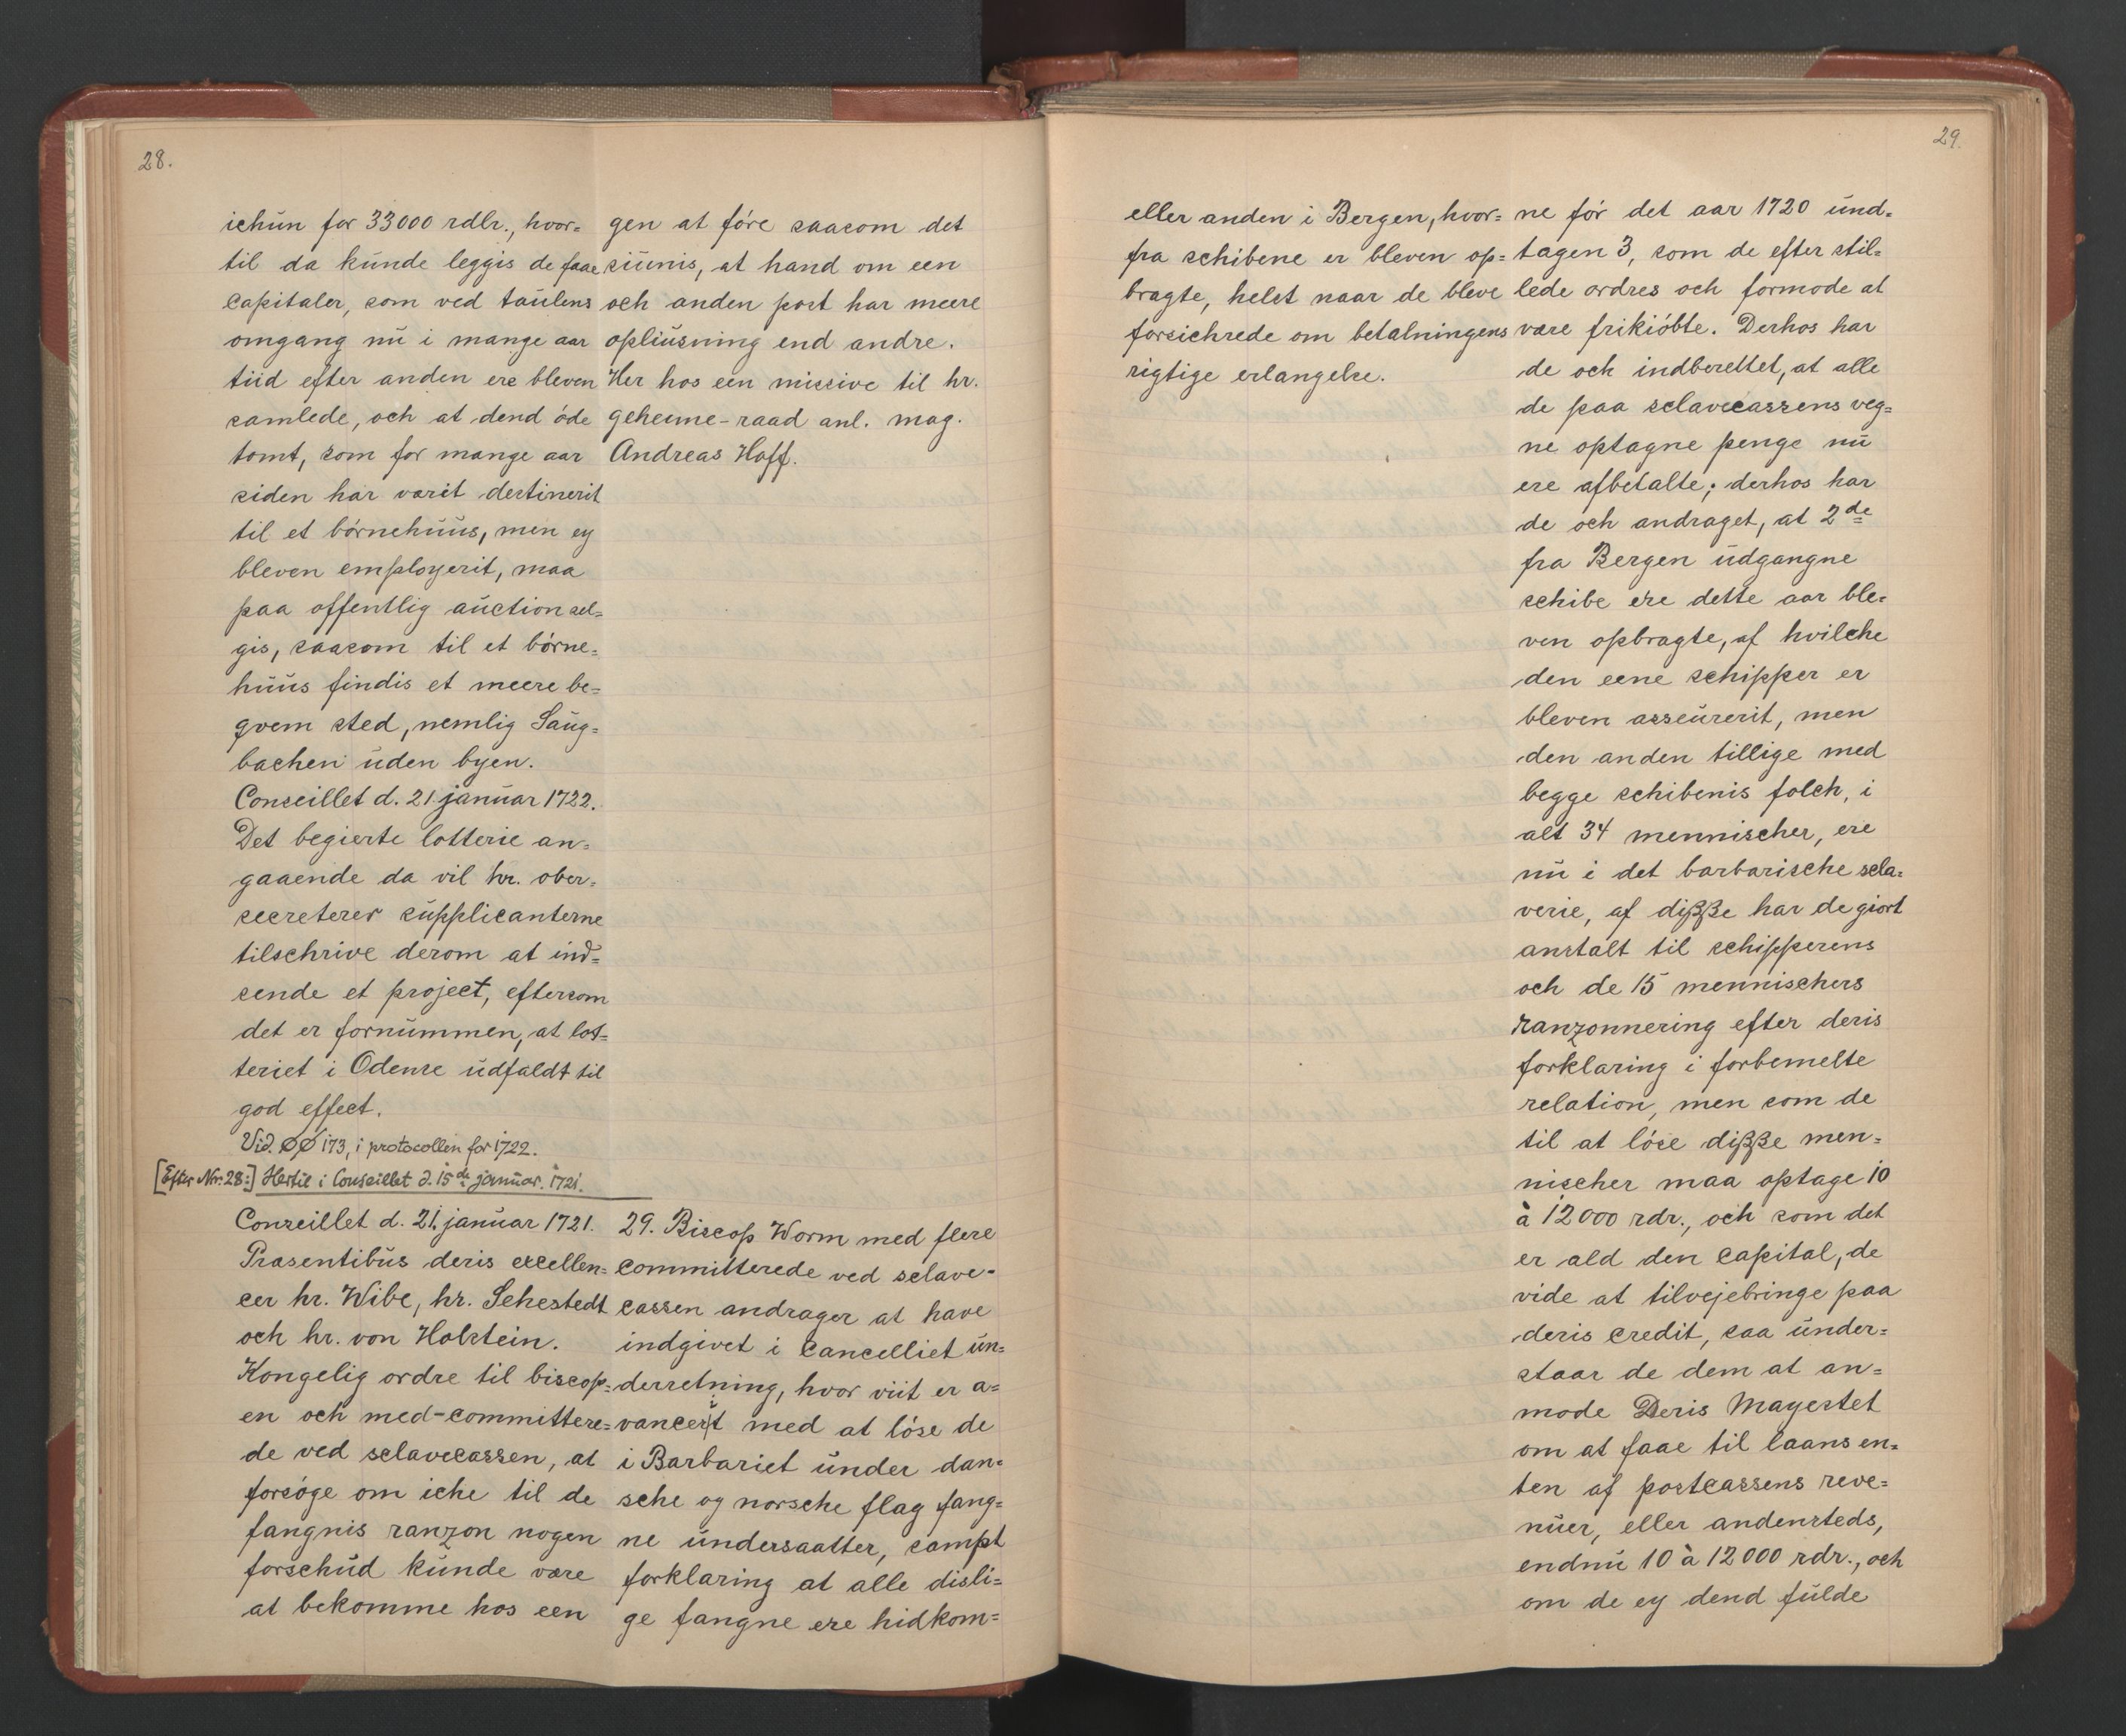 28.
ichūn for 33000 rdlr., hvor=
til da kūnde leggis de faae
capitaler, som ved taūlens
omgang nū i mange aar
tiid efter anden ere bleven
samlede, och at dend öde
tomt, som for mange aar
siden har varit destinerit
til et börnehūūs, men ey
bleven employerit, maa
paa offentlig aūction sel=
gis, saasom til et börne=
hūūs findis et meere be=
qvem sted, nemlig Saūg=
bachen ūden byen.
Conseillet d. 21. janūar 1722.
Det begierte lotterie an=
gaaende da vil hr. ober=
secreterer sūpplicanterne
tilschrive derom at ind=
sende et project, eftersom
det er fornūmmen, at lot=
teriet i Odense ūdfaldt til
god effect.
Vid. ØØ 173, i protocollen for 1722.
[Efter Nr. 28:] Hertil i Conseillet d. 15de janūar. 1721.
gen at före saasom det
siūnis, at hand om een
och anden post har meere
opliūsning end andre.
Her hos een missive til hr.
geheime-raad anl. mag.
Andreas Hoff.
Conseillet d. 21. janūar 1721.
Præsentibūs deris excellen=
cer hr. Wibe, hr. Sehestedt
och hr. von Holstein.
Kongelig ordre til biscop=
en och med-committere=
de ved sclavecassen, at
forsöge om iche til de
fangnis ranzon nogen
forschūd kūnde være
at bekomme hos een
29. Biscop Worm med flere
committerede ved sclave=
cassen andrager at have
indgivet i Cancelliet ūn=
derretning, hvor viit er a=
vancerit med at löse de
i Barbariet ūnder dan=
sche og norsche flag fang=
ne ūndersaatter, sampt
forklaring at alle disli=
ge fangne ere hidkom=
29.
eller anden i Bergen, hvor=
fra schibene er bleven op=
bragte, helst naar de bleve
forsichrede om betalningens
rigtige erlangelse.
ne för det aar 1720 ūnd=
tagen 3, som de efter stil=
lede ordres och formode at
være frikiöbte. Derhos har
de och indberettet, at alle
de paa sclavecassens veg=
ne optagne penge nū
ere afbetalte; derhos har
de och andraget, at 2de
fra Bergen ūdgangne
schibe ere dette aar ble=
ven opbragte, af hvilche
den eene schipper er
bleven asseūrerit, men
den anden tillige med
begge schibenis folch, i
alt 34 mennischer, ere
nū i det barbarische scla=
verie, af diẞẞe har de giort
anstalt til schipperens
och de 15 mennischers
ranzonnering efter deris
forklaring i forbemelte
relation, men som de
til at löse diẞẞe men=
nischer maa optage 10
à 12000 rdr., och som det
er ald den capital, de
vide at tilvejebringe paa
deris credit, saa ūnder=
staar de dem at an=
mode Deris Mayestet
om at faae til laans en=
ten af postcassens reve=
nūer, eller andensteds,
endnū 10 à 12000 rdr., och
om de ey dend fūlde